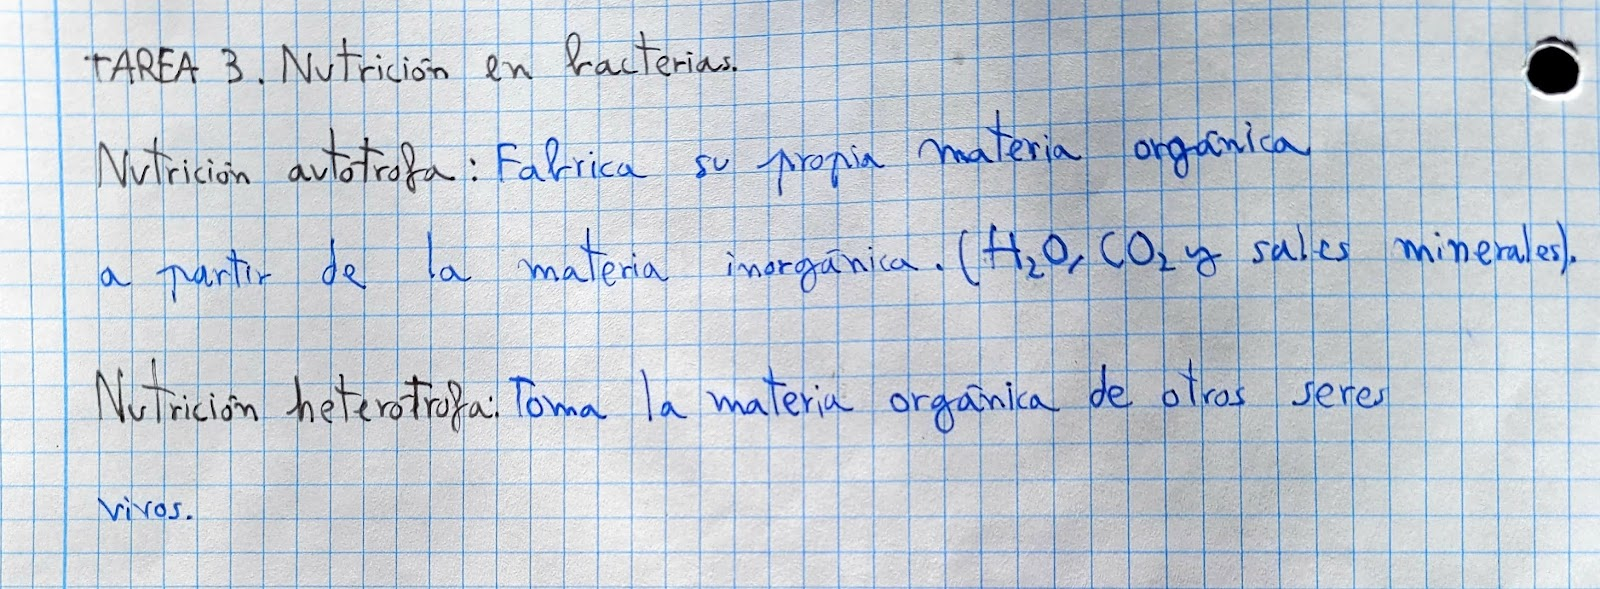 TAREA 3. Nutrición en bacterias.
Nutrición autótrofa: Fabrica su propia materia orgánica
a partir de la materia inorgánica. (H₂O, CO₂ y sales minerales).
Nutrición heterotrofa: Toma la materia orgánica de otros seres
vivos.